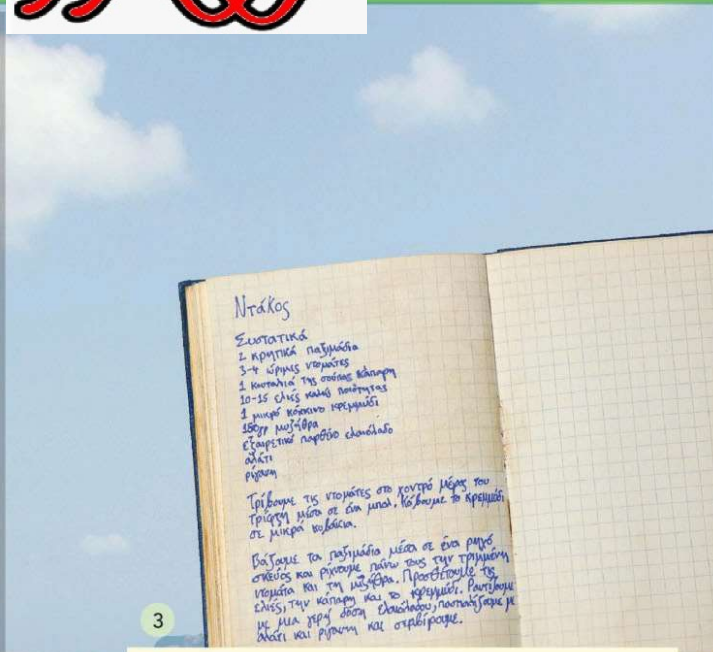 Ντάκος
Συστατικά
2 κρητικά παξιμάδια
3-4 ώριμες ντομάτες
1 κουταλιά της σούπας κάπαρη
10-15 ελιές καλής ποιότητας
1 μικρό κόκκινο κρεμμύδι
180γρ μυζήθρα
εξαιρετικό παρθένο ελαιόλαδο
αλάτι
ρίγανη
Τρίβουμε τις ντομάτες στο χοντρό μέρος του
τρίφτη μέσα σε ένα μπολ. Κόβουμε το κρεμμύδι
σε μικρά κυβάκια.
Βάζουμε τα παξιμάδια μέσα σε ένα ρηχό
σκεύος και ρίχνουμε πάνω τους την τριμμένη
ντομάτα και τη μυζήθρα. Προσθέτουμε τις
ελιές, την κάπαρη και το κρεμμύδι. Ραντίζουμε
με μια γερή δόση ελαιόλαδου, πασπαλίζουμε με
αλάτι και ρίγανη και σερβίρουμε.
3